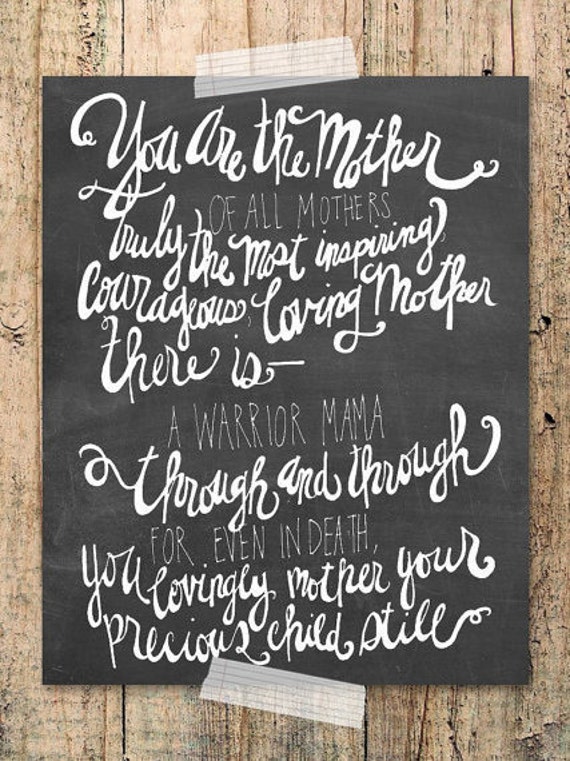 You Are the Mother
OF ALL MOTHERS
Truly the most inspiring,
Courageous, loving Mother
there is—
A WARRIOR MAMA
through and through
FOR EVEN IN DEATH,
you lovingly mother your
precious child still